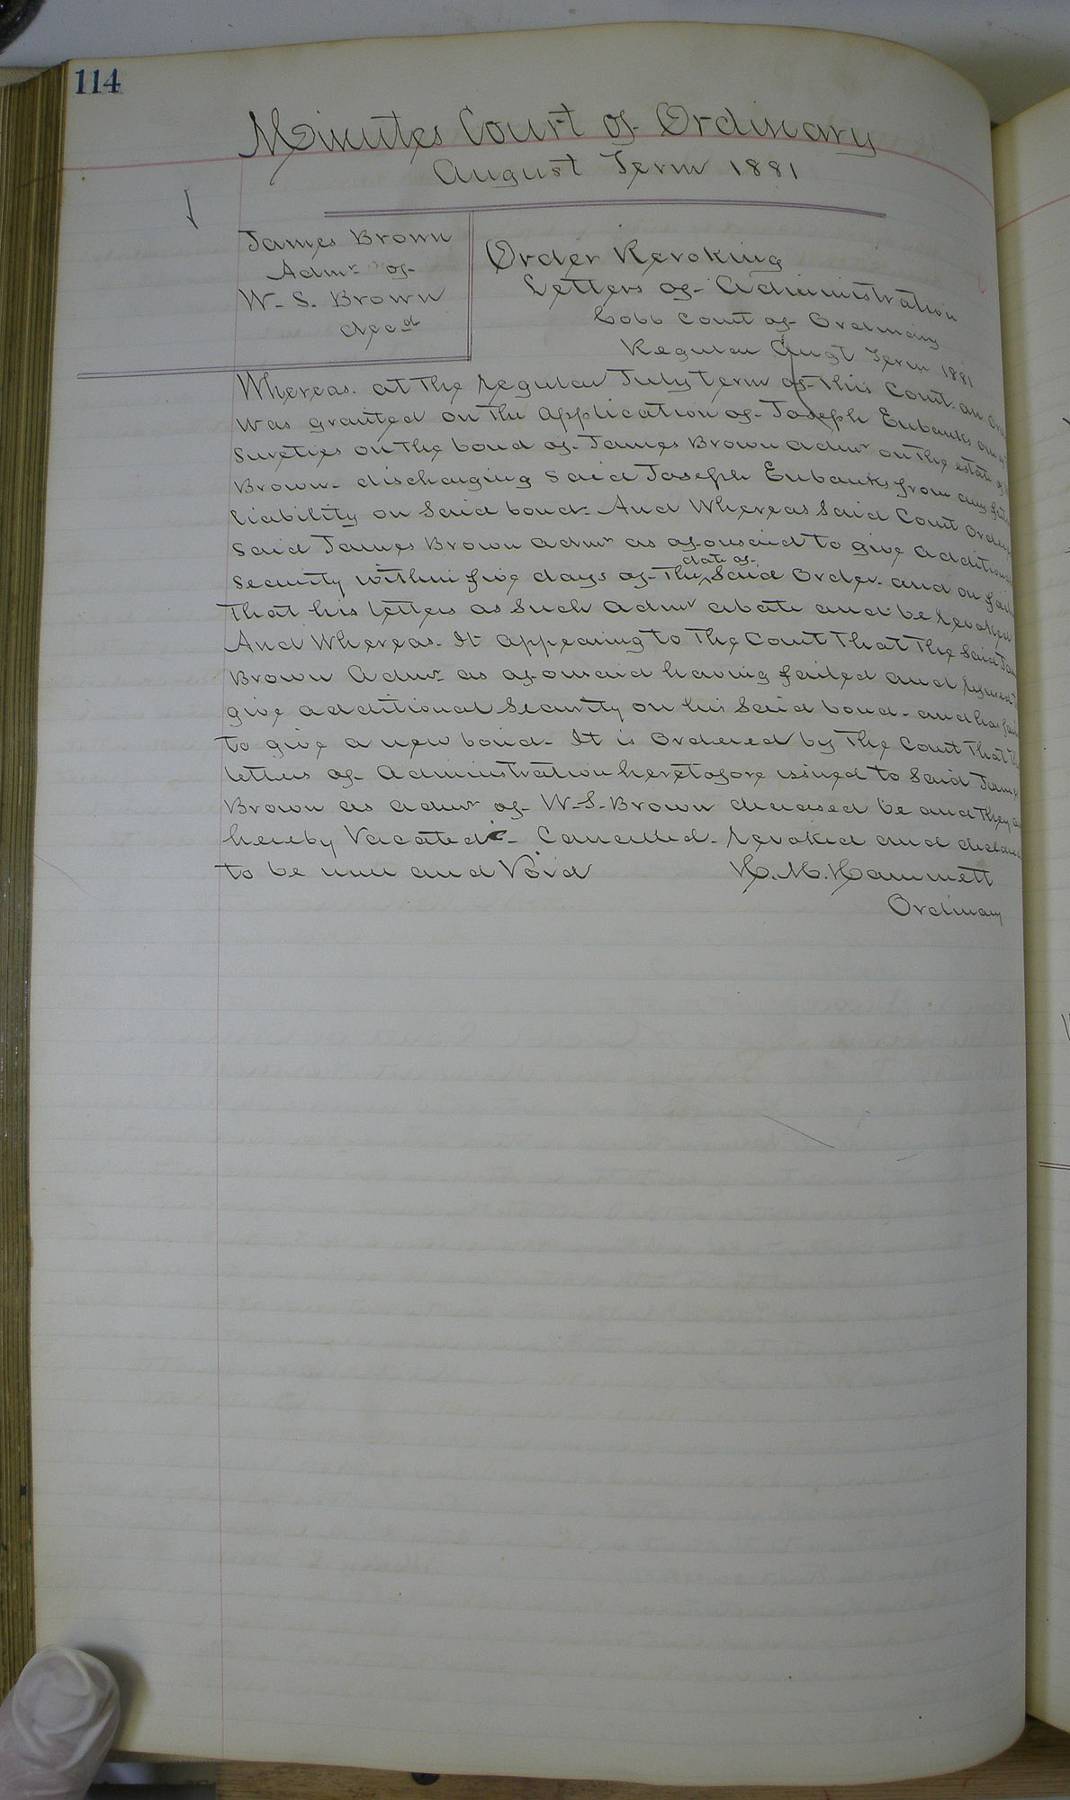 114
Minutes Court of Ordinary
August Term 1881
James Brown
Admr of
W. S. Brown
decd
Order Revoking
Letters of Administration
Cobb Court of Ordinary
Regular Augt Term 1881
Whereas. at the regular July term of this Court. an
was granted on the application of Joseph Eubanks one of
Sureties on the bond of James Brown admr on the estate of
Brown. discharging said Joseph Eubanks from any
liability on said bond. And Whereas said Court
said James Brown admr as aforesaid to give
security within five days of the date of said order. and on
that his letters as such admr abate and be revoked
And Whereas. It appearing to the Court that the said
Brown Admr as aforesaid having failed and
give additional security on his said bond. and has
to give a new bond. It is ordered by the Court that
letters of Administration heretofore issued to said James
Brown as admr of W. S. Brown deceased be and they
hereby Vacated - Cancelled. revoked and
to be null and Void
H. M. Hammett
Ordinary